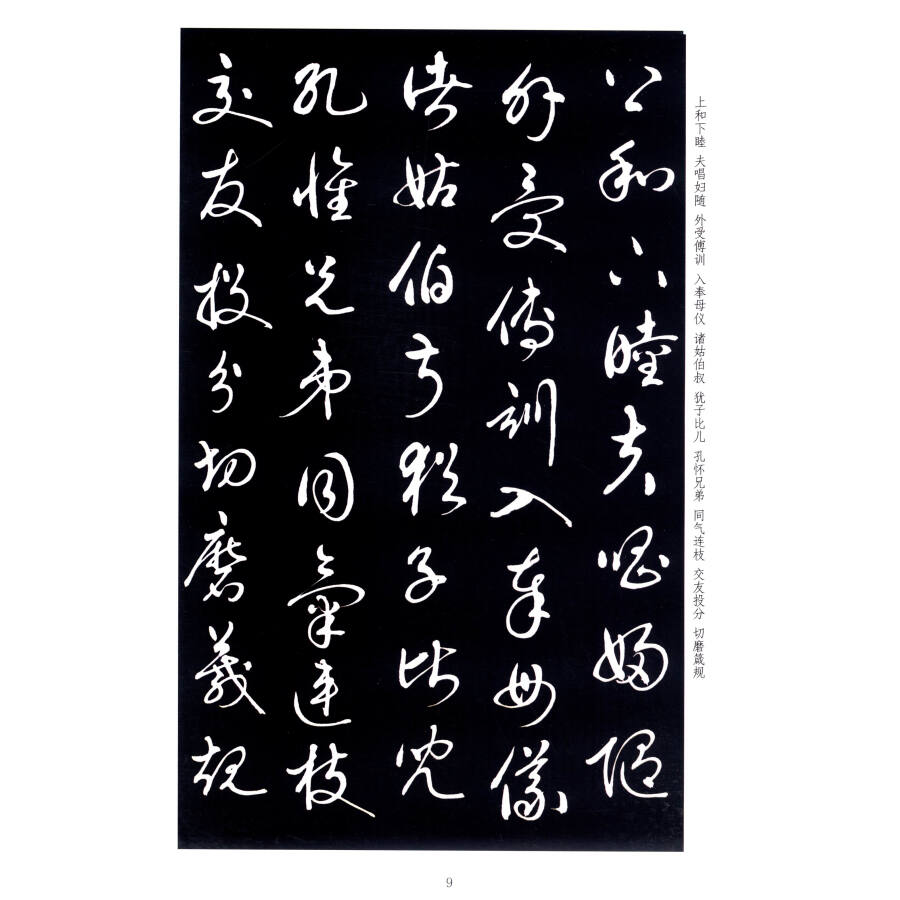 上和下睦 夫唱妇随 外受傅训 入奉母仪 诸姑伯叔 犹子比儿 孔怀兄弟 同气连枝 交友投分 切磨箴规
上和下睦夫唱婦随
外受傅訓入奉母儀
諸姑伯叔猶子比兒
孔懷兄弟同氣連枝
交友投分切磨箴規
9